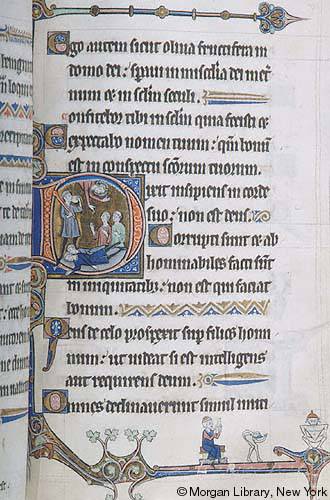 Ego autem sicut oliua fructifera in
domo dei: spaui in misc̄dia dei in et̄
num et in sc̄lm seculi.
Confitebor tibi in sc̄lm quia fecisti et
expectabo nomen tuum: qm̄ bonū
est in conspectu sc̄orum tuorum.
Dixit insipiens in corde
suo: non est deus.
Corrupti sunt et ab
hominabiles facti sūt
in iniquitatib: non est qui faciat
bonum.
Deus de celo prospexit sup filios homi
num: ut uideat si est intelligens
aut requirens deum.
Omnes declinauerunt simul inuti
© Morgan Library, New York